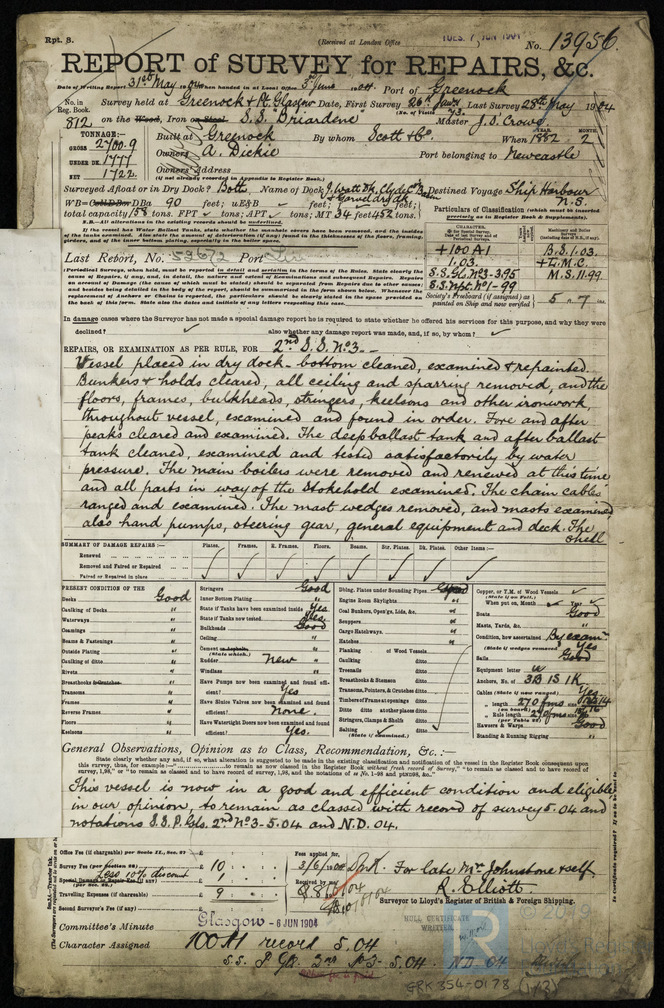 Rpt. 8.
(Received at London Office TUES. 7 JUN 1904)
No. 13956.
REPORT of SURVEY for REPAIRS, &c.
Date of Writing Report 31st May 1904 When handed in at Local Office 3rd June 1904. Port of Greenock
No. in Reg. Book. Survey held at Greenock & Pt Glasgow Date, First Survey 26th Jany Last Survey 28th May 1904
(No. of Visits 73.)
812 on the Wood, Iron or Steel S.S. Briardene Master J. S. Crowe
TONNAGE:—
GROSS 2700.9
UNDER DK. 1777
NET 1722
Built at Greenock By whom Scott & Co. When 1882 YEAR. MONTH. 2
Owners A. Dickie Port belonging to Newcastle
Owners' Address
(If not already recorded in Appendix to Register Book.)
Surveyed Afloat or in Dry Dock? Both Name of Dock J. Watt Dk, Destined Voyage Ship Harbour N.S.
WB=CellDB or DBa 90 feet; uE&B feet; f feet;
total capacity 158 tons. FPT tons; APT tons; MT 34 feet 452 tons.
N.B.—All alterations in the existing records should be underlined.
Particulars of Classification (which must be inserted precisely as in Register Book & Supplements).
If the vessel has Water Ballast Tanks, state whether the manhole covers were removed, and the insides of the tanks examined. Also state the amount of deterioration (if any) found in the thicknesses of the floors, framing, girders, and of the inner bottom plating, especially in the boiler space.
Last Report, No. 53672 Port
CHARACTER.
+100A1
1.03.
S.S. Gl. No 3-3.95
S.S. Npt. No 1-99
B.S. 1.03.
+L.M.C.
M.S. 11.99
Society's Freeboard (if assigned) as painted on Ship and now verified 5 . 7
(Periodical Surveys, when held, must be reported in detail and seriatim in the terms of the Rules. State clearly the cause of Repairs, if any, and, in detail, the nature and extent of Examinations and subsequent Repairs.
In damage cases where the Surveyor has not made a special damage report he is required to state whether he offered his services for this purpose, and why they were
declined? also whether any damage report was made, and, if so, by whom?
REPAIRS, OR EXAMINATION AS PER RULE, FOR 2nd S.S. No 3.—
Vessel placed in dry dock - bottom cleaned, examined & repainted.
Bunkers & holds cleared, all ceiling and sparring removed, and the
floors, frames, bulkheads, stringers, keelsons and other ironwork,
throughout vessel, examined and found in order. Fore and after
peaks cleared and examined. The deep ballast tank and after ballast
tank cleaned, examined and tested satisfactorily by water
pressure. The main boilers were removed and renewed at this time
and all parts in way of the stokehold examined. The chain cables
ranged and examined. The mast wedges removed, and masts examined
also hand pumps, steering gear, general equipment and deck. The
shell
SUMMARY OF DAMAGE REPAIRS:— Plates. Frames. R. Frames. Floors. Beams. Str. Plates. Dk. Plates. Other Items:—
Renewed
Removed and Faired or Repaired
Faired or Repaired in place
PRESENT CONDITION OF THE
Decks Good
Caulking of Decks "
Waterways "
Coamings "
Beams & Fastenings "
Outside Plating "
Caulking of ditto "
Rivets "
Breasthooks & Crutches "
Transoms "
Frames "
Reverse Frames "
Floors "
Keelsons "
Stringers Good
Inner Bottom Plating
State if Tanks have been examined inside Yes
State if Tanks now tested Yes
Bulkheads Good
Ceiling "
Cement or Asphalte, (State which.) "
Rudder New
Windlass "
Have Pumps now been examined and found efficient? Yes
Have Sluice Valves now been examined and found efficient? None.
Have Watertight Doors now been examined and found efficient? Yes.
Dblng. Plates under Sounding Pipes Good
Engine Room Skylights "
Coal Bunkers, Open'gs, Lids, &c. "
Scuppers "
Cargo Hatchways. "
Hatches "
Planking of Wood Vessels
Caulking ditto
Treenails ditto
Breasthooks & Stemson ditto
Transoms, Pointers, & Crutches ditto
Timbers of Frame at openings ditto
Ditto ditto at other places ditto
Stringers, Clamps & Shelfs ditto
Salting ditto
(State if examined.)
Copper, or Y.M. of Wood Vessels
(State if on Felt.)
When put on, Month Year
Boats Good
Masts, Yards, &c. "
Condition, how ascertained By exam
(State if wedges removed) Yes
Sails Good
Equipment letter u
Anchors, No. of 3B 1S 1K
Cables (State if now ranged) Yes
" length 270 fms size
(on board)
" Rule length 270 fms size
(per Table 22)
Hawsers & Warps Good
Standing & Running Rigging "
General Observations, Opinion as to Class, Recommendation, &c. :—
State clearly whether any and, if so, what alteration is suggested to be made in the existing classification and notification of the vessel in the Register Book consequent upon
this survey, thus, for example:—" to remain as now classed in the Register Book without fresh record of Survey," "to remain as classed and to have record of
survey, 1,98," or "to remain as classed and to have record of survey, 1,98, and the notations of ss No. 1-98 and ptND98, &c."
This vessel is now in a good and efficient condition and eligible
in our opinion, to remain as classed with record of survey 5.04 and
notations S.S. P. Gls. 2nd No 3-5.04 and N.D. 04.
Office Fee (if chargeable) per Scale II., Sec. 27 £
Survey Fee (per Section 28) £ 10
Less 10% discount
Special Damage or Repair Fee (if any) (per Sec. 28.) £
Travelling Expenses (if chargeable) £ 9
Second Surveyor's Fee (if any) £
Fees applied for, 3/6/1904
Received by me,
For late Mr Johnstone & self
R. Elliott.
Surveyor to Lloyd's Register of British & Foreign Shipping.
Committee's Minute Glasgow - 6 JUN 1904
HULL CERTIFICATE WRITTEN
Character Assigned 100A1 record 5.04
S.S. P Gls. 2nd No 3-5.04. N.D. 04
© 2019
Lloyd's Register
GRK 354-0178 (1/2)